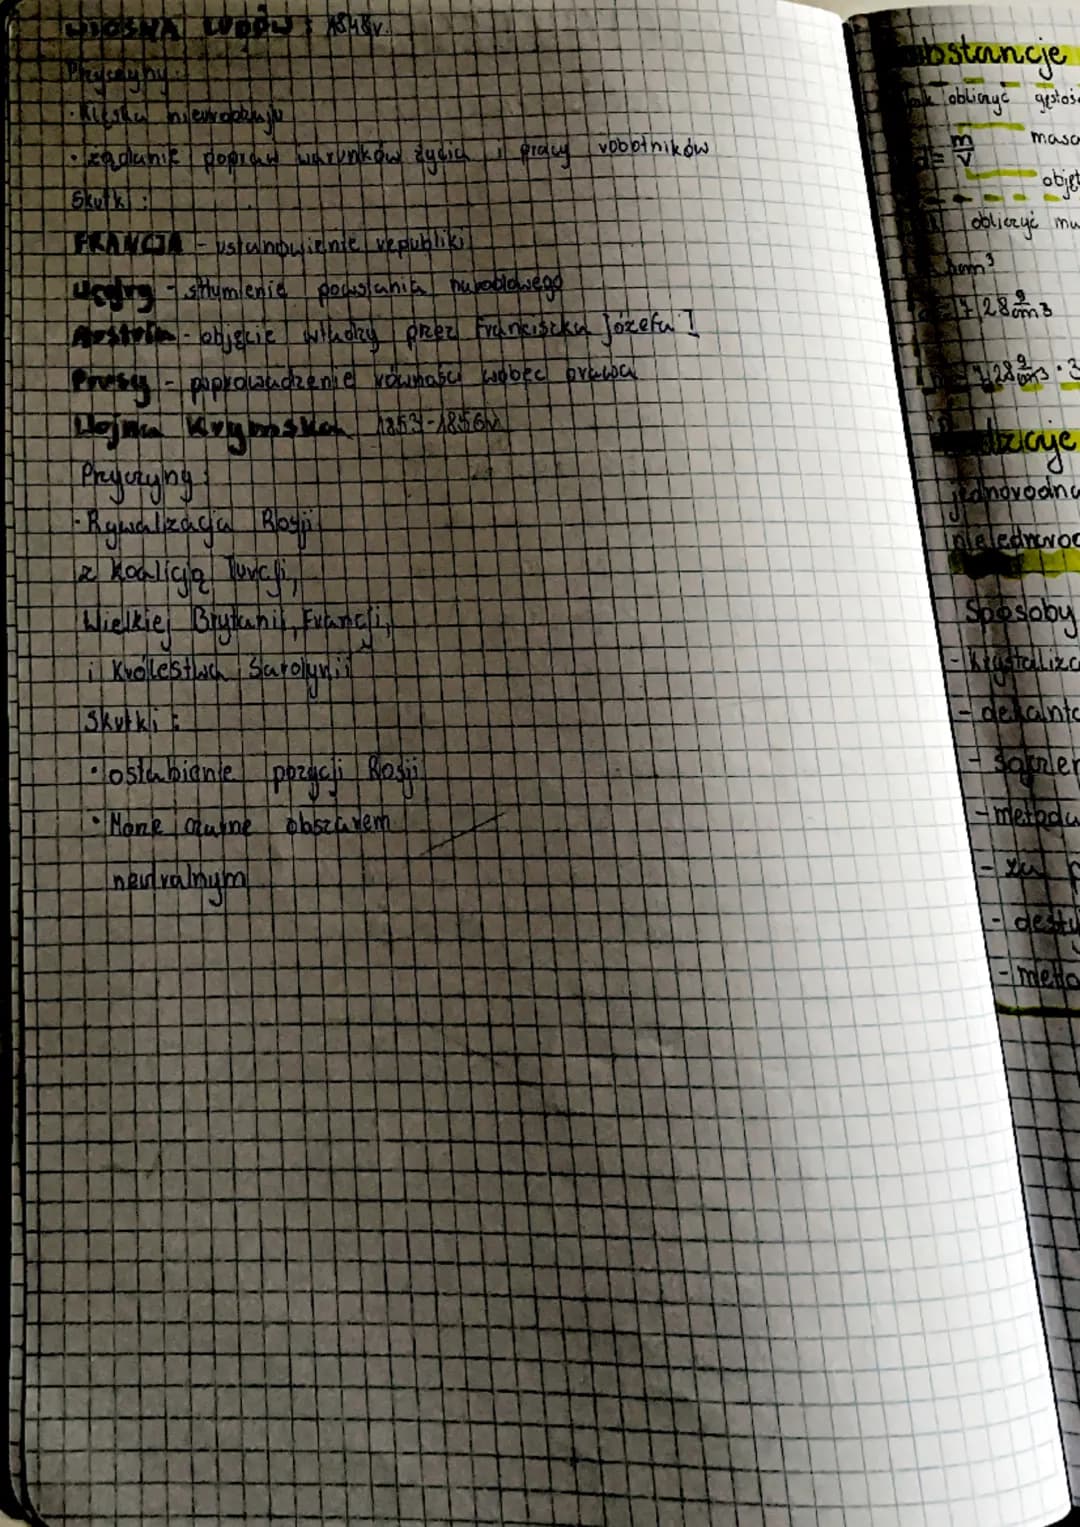 WIOSNA LUDÓW: 1848r.
Przyczyny:
· Klęska nieurodzaju
· żądanie popraw warunków życia i pracy robotników
Skutki:
FRANCJA - ustanowienie republiki
Węgry - stłumienie powstania narodowego
Austria - objęcie władzy przez Franciszka Józefa I
Prusy - poprowadzenie równości wobec prawa
Wojna Krymska 1853-1856r.
Przyczyny:
· Rywalizacja Rosji
z koalicją Turcji,
Wielkiej Brytanii, Francji,
i Królestwa Sardynii
Skutki:
· osłabienie pozycji Rosji
· Morze czarne obszarem
neutralnym
bstancje
obliczyć gęstoś
m
masa
V
objęt
obliczyć ma
28 g/cm3
28 g/cm3 · 3
jednorodna
Sposoby
- krystaliza
- dekanta
- metoda
- za p
- desty
- meto